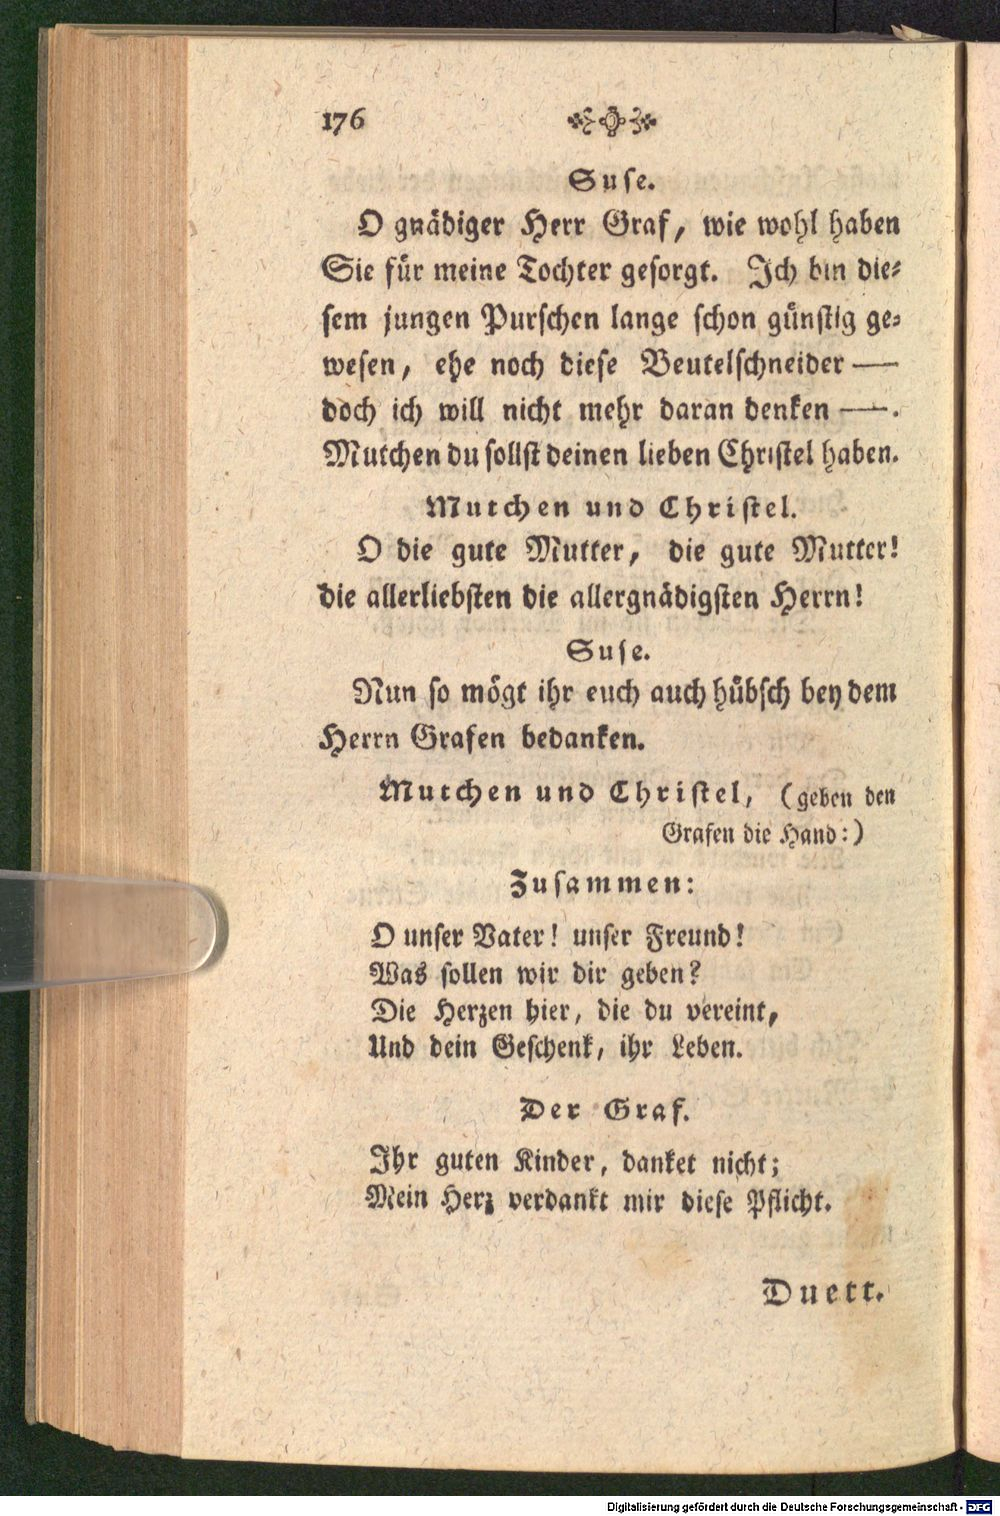 176
Suse.
O gnädiger Herr Graf, wie wohl haben
Sie für meine Tochter gesorgt. Ich bin die-
sem jungen Purschen lange schon günstig ge-
wesen, ehe noch diese Beutelschneider —
doch ich will nicht mehr daran denken —.
Mutchen du sollst deinen lieben Christel haben.
Mutchen und Christel.
O die gute Mutter, die gute Mutter!
die allerliebsten die allergnädigsten Herrn!
Suse.
Nun so mögt ihr euch auch hübsch bey dem
Herrn Grafen bedanken.
Mutchen und Christel, (geben den
Grafen die Hand:)
Zusammen:
O unser Vater! unser Freund!
Was sollen wir dir geben?
Die Herzen hier, die du vereint,
Und dein Geschenk, ihr Leben.
Der Graf.
Ihr guten Kinder, danket nicht;
Mein Herz verdankt mir diese Pflicht.
Duett.
Digitalisierung gefördert durch die Deutsche Forschungsgemeinschaft - DFG